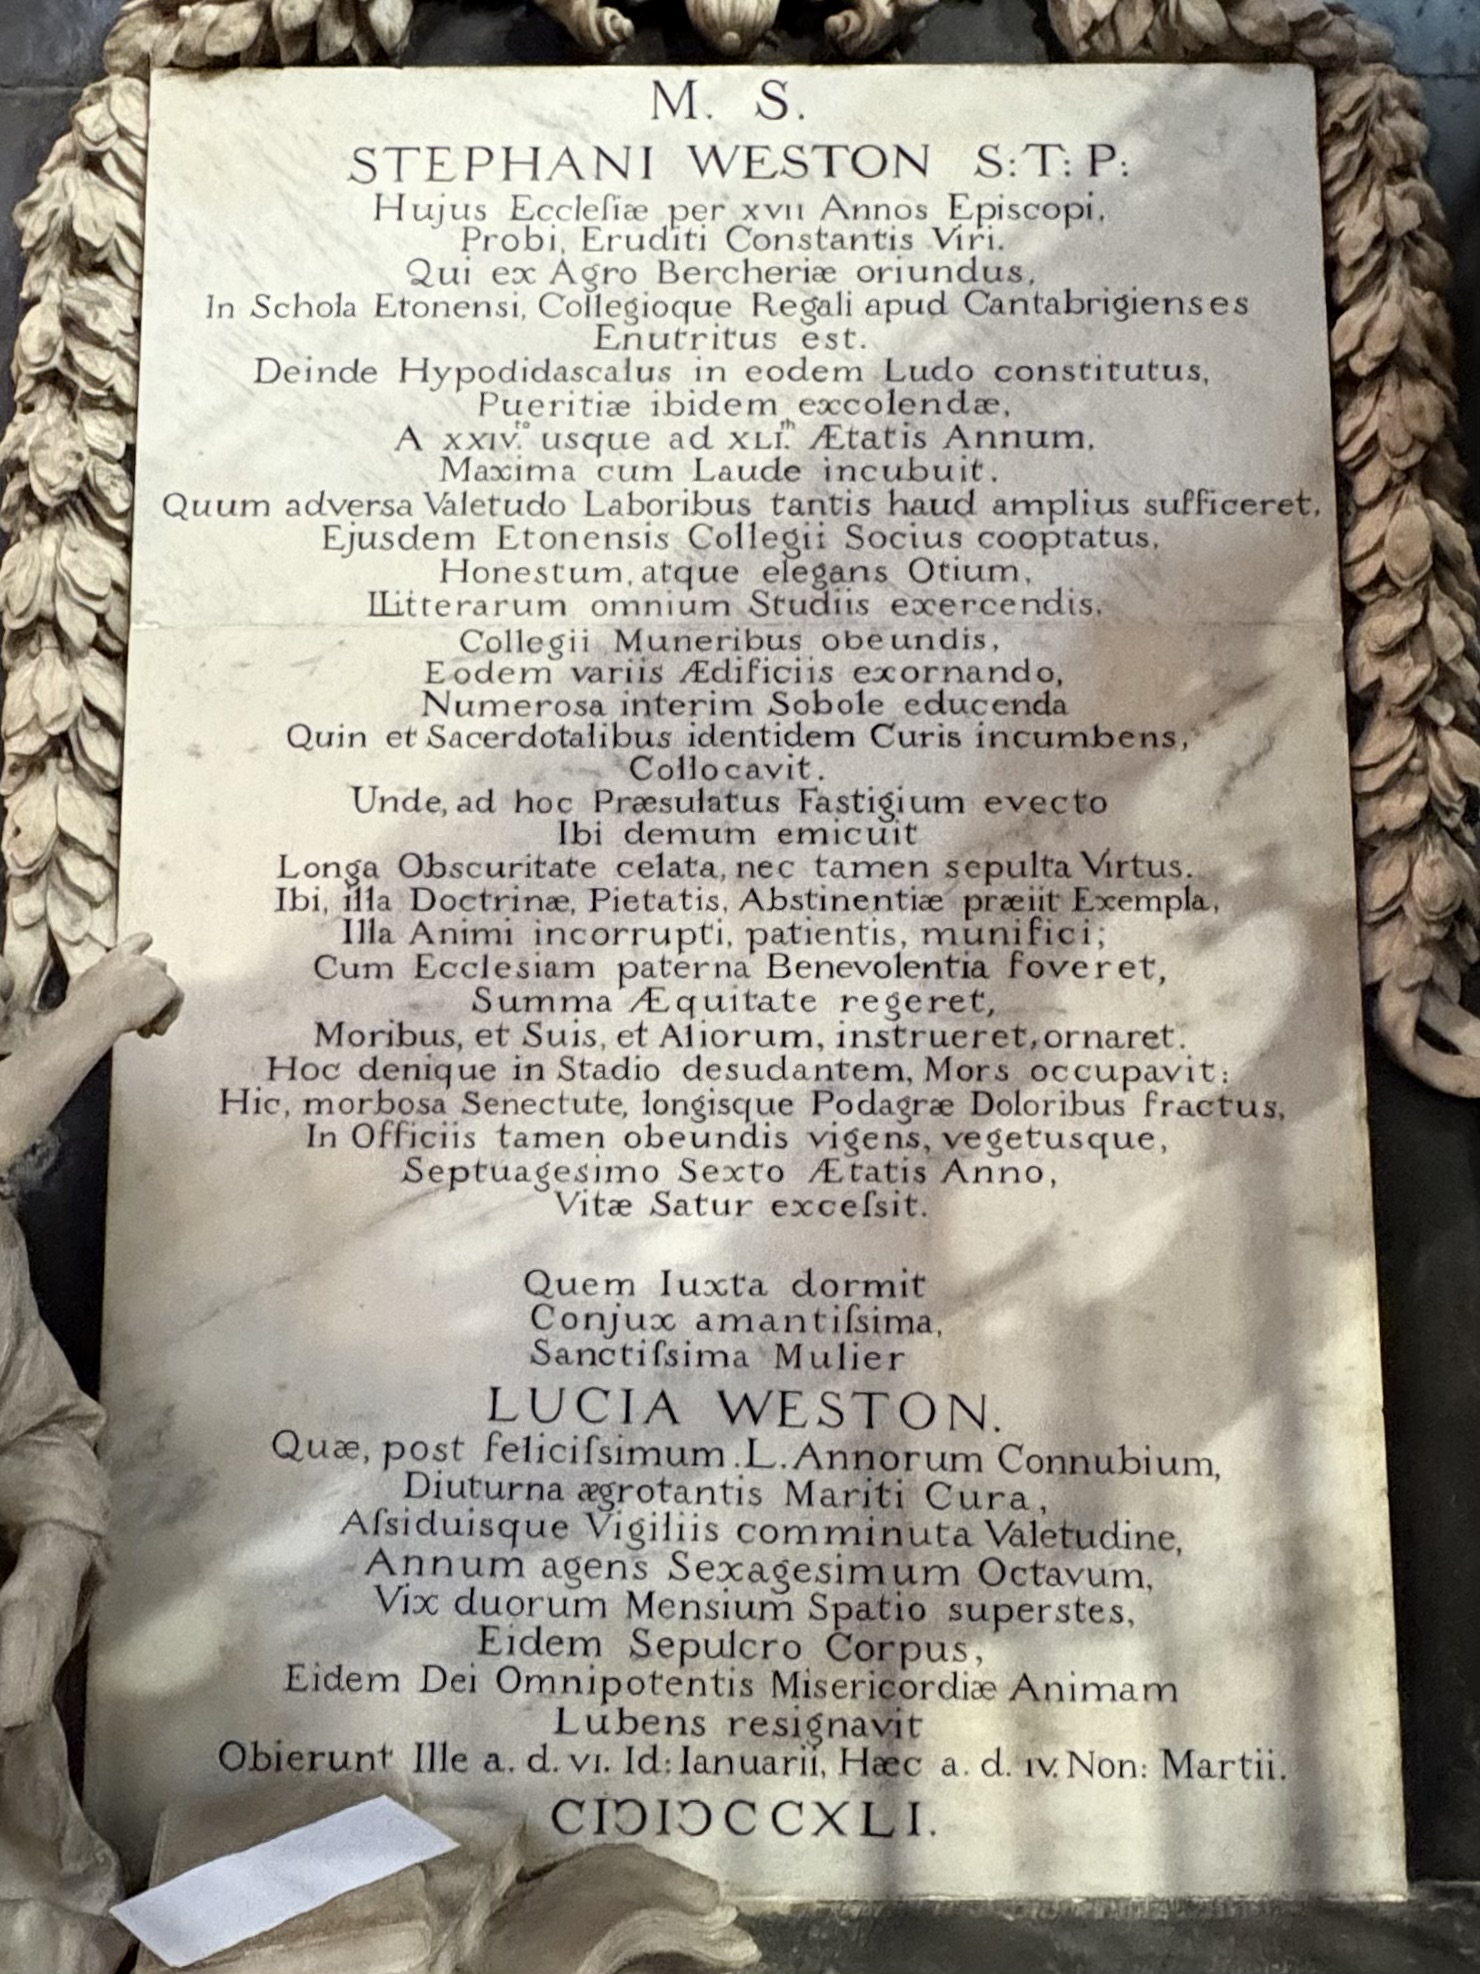 M. S.
STEPHANI WESTON S:T:P:
Hujus Eccleſiæ per XVII Annos Episcopi,
Probi, Eruditi Constantis Viri.
Qui ex Agro Bercheriæ oriundus,
In Schola Etonensi, Collegioque Regali apud Cantabrigienses
Enutritus est.
Deinde Hypodidascalus in eodem Ludo constitutus,
Pueritiæ ibidem excolendæ,
A XXIV.to usque ad XLI.m Ætatis Annum,
Maxima cum Laude incubuit.
Quum adversa Valetudo Laboribus tantis haud amplius sufficeret,
Ejusdem Etonensis Collegii Socius cooptatus,
Honestum, atque elegans Otium,
Litterarum omnium Studiis exercendis,
Collegii Muneribus obeundis,
Eodem variis Ædificiis exornando,
Numerosa interim Sobole educenda
Quin et Sacerdotalibus identidem Curis incumbens,
Collocavit.
Unde, ad hoc Præsulatus Fastigium evecto
Ibi demum emicuit
Longa Obscuritate celata, nec tamen sepulta Virtus.
Ibi, illa Doctrinæ, Pietatis, Abstinentiæ præiit Exempla,
Illa Animi incorrupti, patientis, munifici;
Cum Ecclesiam paterna Benevolentia foveret,
Summa Æquitate regeret,
Moribus, et Suis, et Aliorum, instrueret, ornaret.
Hoc denique in Stadio desudantem, Mors occupavit:
Hic, morbosa Senectute, longisque Podagræ Doloribus fractus,
In Officiis tamen obeundis vigens, vegetusque,
Septuagesimo Sexto Ætatis Anno,
Vitæ Satur exceſsit.
Quem Iuxta dormit
Conjux amantiſsima,
Sanctiſsima Mulier
LUCIA WESTON.
Quæ, post feliciſsimum .L. Annorum Connubium,
Diuturna ægrotantis Mariti Cura,
Aſsiduisque Vigiliis comminuta Valetudine,
Annum agens Sexagesimum Octavum,
Vix duorum Mensium Spatio superstes,
Eidem Sepulcro Corpus,
Eidem Dei Omnipotentis Misericordiæ Animam
Lubens resignavit
Obierunt Ille a. d. VI. Id: Ianuarii, Hæc a. d. IV. Non: Martii.
CIƆIƆCCXLI.